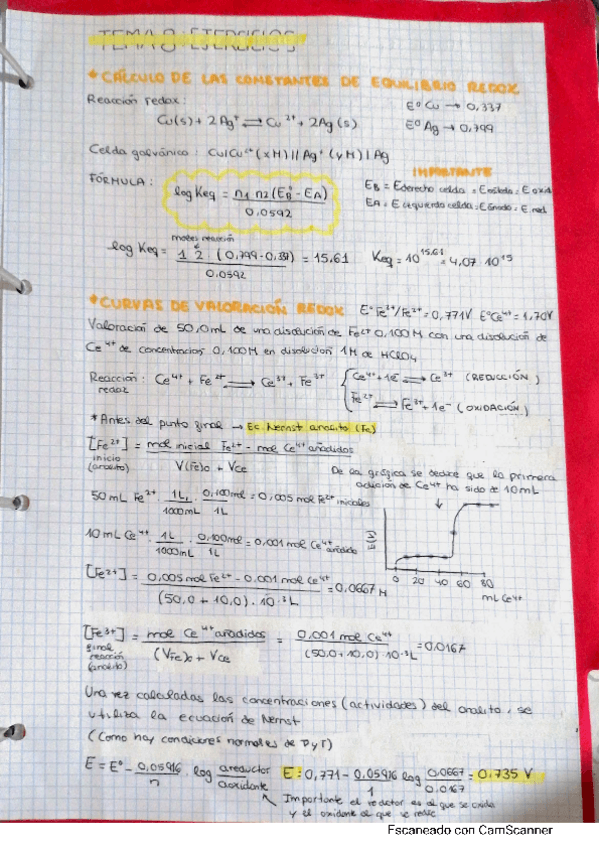 TEMA 8: EJERCICIOS
* CÁLCULO DE LAS CONSTANTES DE EQUILIBRIO REDOX
Reacción redox: E° Cu → 0,337
Cu(s) + 2Ag⁺ ⇌ Cu²⁺ + 2Ag(s) E° Ag → 0,799
Celda galvánica: Cu|Cu²⁺(xM)||Ag⁺(yM)|Ag
IMPORTANTE
FÓRMULA: log Keq = n1 n2 (E°B - EA) / 0,0592
EB = Ederecho celda = Ecátodo =
EA = E izquierda celda = Eánodo = E red
moles reacción
log Keq = 1 2 (0,799 - 0,337) / 0,0592 = 15,61 Keq = 10^15,61 = 4,07 10^15
* CURVAS DE VALORACIÓN REDOX E° Fe³⁺/Fe²⁺ = 0,771V E° Ce⁴⁺ = 1,70V
Valoración de 50,0mL de una disolución de Fe²⁺ 0,100M con una disolución de
Ce⁴⁺ de concentración 0,100M en disolución 1M de HClO4
Reacción: Ce⁴⁺ + Fe²⁺ ⇌ Ce³⁺ + Fe³⁺ { Ce⁴⁺ + 1e⁻ ⇌ Ce³⁺ (REDUCCIÓN)
redox Fe²⁺ ⇌ Fe³⁺ + 1e⁻ (OXIDACIÓN)
* Antes del punto final → Ec. Nernst analito (Fe)
[Fe²⁺] = mol inicial Fe²⁺ - mol Ce⁴⁺ añadidos / V(Fe)o + Vce
inicio
(analito)
De la gráfica se deduce que la primera
adición de Ce⁴⁺ ha sido de 10mL
50 mL Fe²⁺ · 1L / 1000mL · 0,100mol / 1L = 0,005 mol Fe²⁺ iniciales
10 mL Ce⁴⁺ · 1L / 1000mL · 0,100mol / 1L = 0,001 mol Ce⁴⁺ añadido
E(V)
0 20 40 60 80
mL Ce⁴⁺
[Fe²⁺] = 0,005 mol Fe²⁺ - 0,001 mol Ce⁴⁺ / (50,0 + 10,0) · 10⁻³ L = 0,0667 M
[Fe³⁺] = mol Ce⁴⁺ añadidos / (VFe)o + VCe = 0,001 mol Ce⁴⁺ / (50,0 + 10,0) · 10⁻³ L = 0,0167
final
reacción
(analito)
Una vez calculadas las concentraciones (actividades) del analito, se
utiliza la ecuación de Nernst
(Como hay condiciones normales de P y T)
E = E° - 0,05916 / n · log areductor / aoxidante E = 0,771 - 0,05916 / 1 log 0,0667 / 0,0167 = 0,735 V
Importante el reductor es el que se oxida
y el oxidante el que se reduc
Escaneado con CamScanner